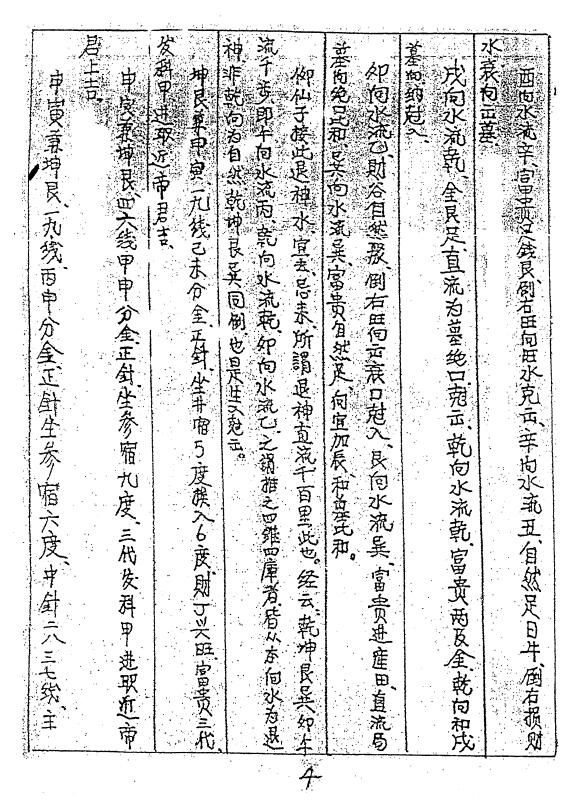 酉向水流辛、富貴足錢良、倒右旺向旺水克出、辛向水流丑、自然足日牛、倒右損財
水衰向出墓、
戌向水流乾、金艮足、直流为墓绝口尅出、乾向水流乾、富贵两及全、乾向和戌
墓向絕尅入、
卯向水流乙、财谷自然發、倒右旺向出衰口尅入、艮向水流巽、富贵進庄田、直流局
墓向绝口和、巽向水流巽、富贵自然足、向宜加辰、和墓比和。
御仙子按此退神水宜去、忌来、所謂退神直流千百里此也。经云、乾坤艮巽卯午
流千步即午向水流丙、乾向水流乾、卯向水流乙、之類推之四維四庫者、皆从本向水为退
神、非乾向为自然乾坤艮巽同倒、也是生入尅出。
坤艮兼申寅、一九线己未分金、正針、坐井宿5度挨入6度、財丁兴旺、富贵三代
发科甲進取近帝君吉、
申寅兼坤艮、四六线甲申分金、正針坐参宿九度、三代发科甲進取近帝
君上吉、
申寅兼坤艮、一九线、丙申分金、正針坐参宿六度、中針二八三七线、主
4